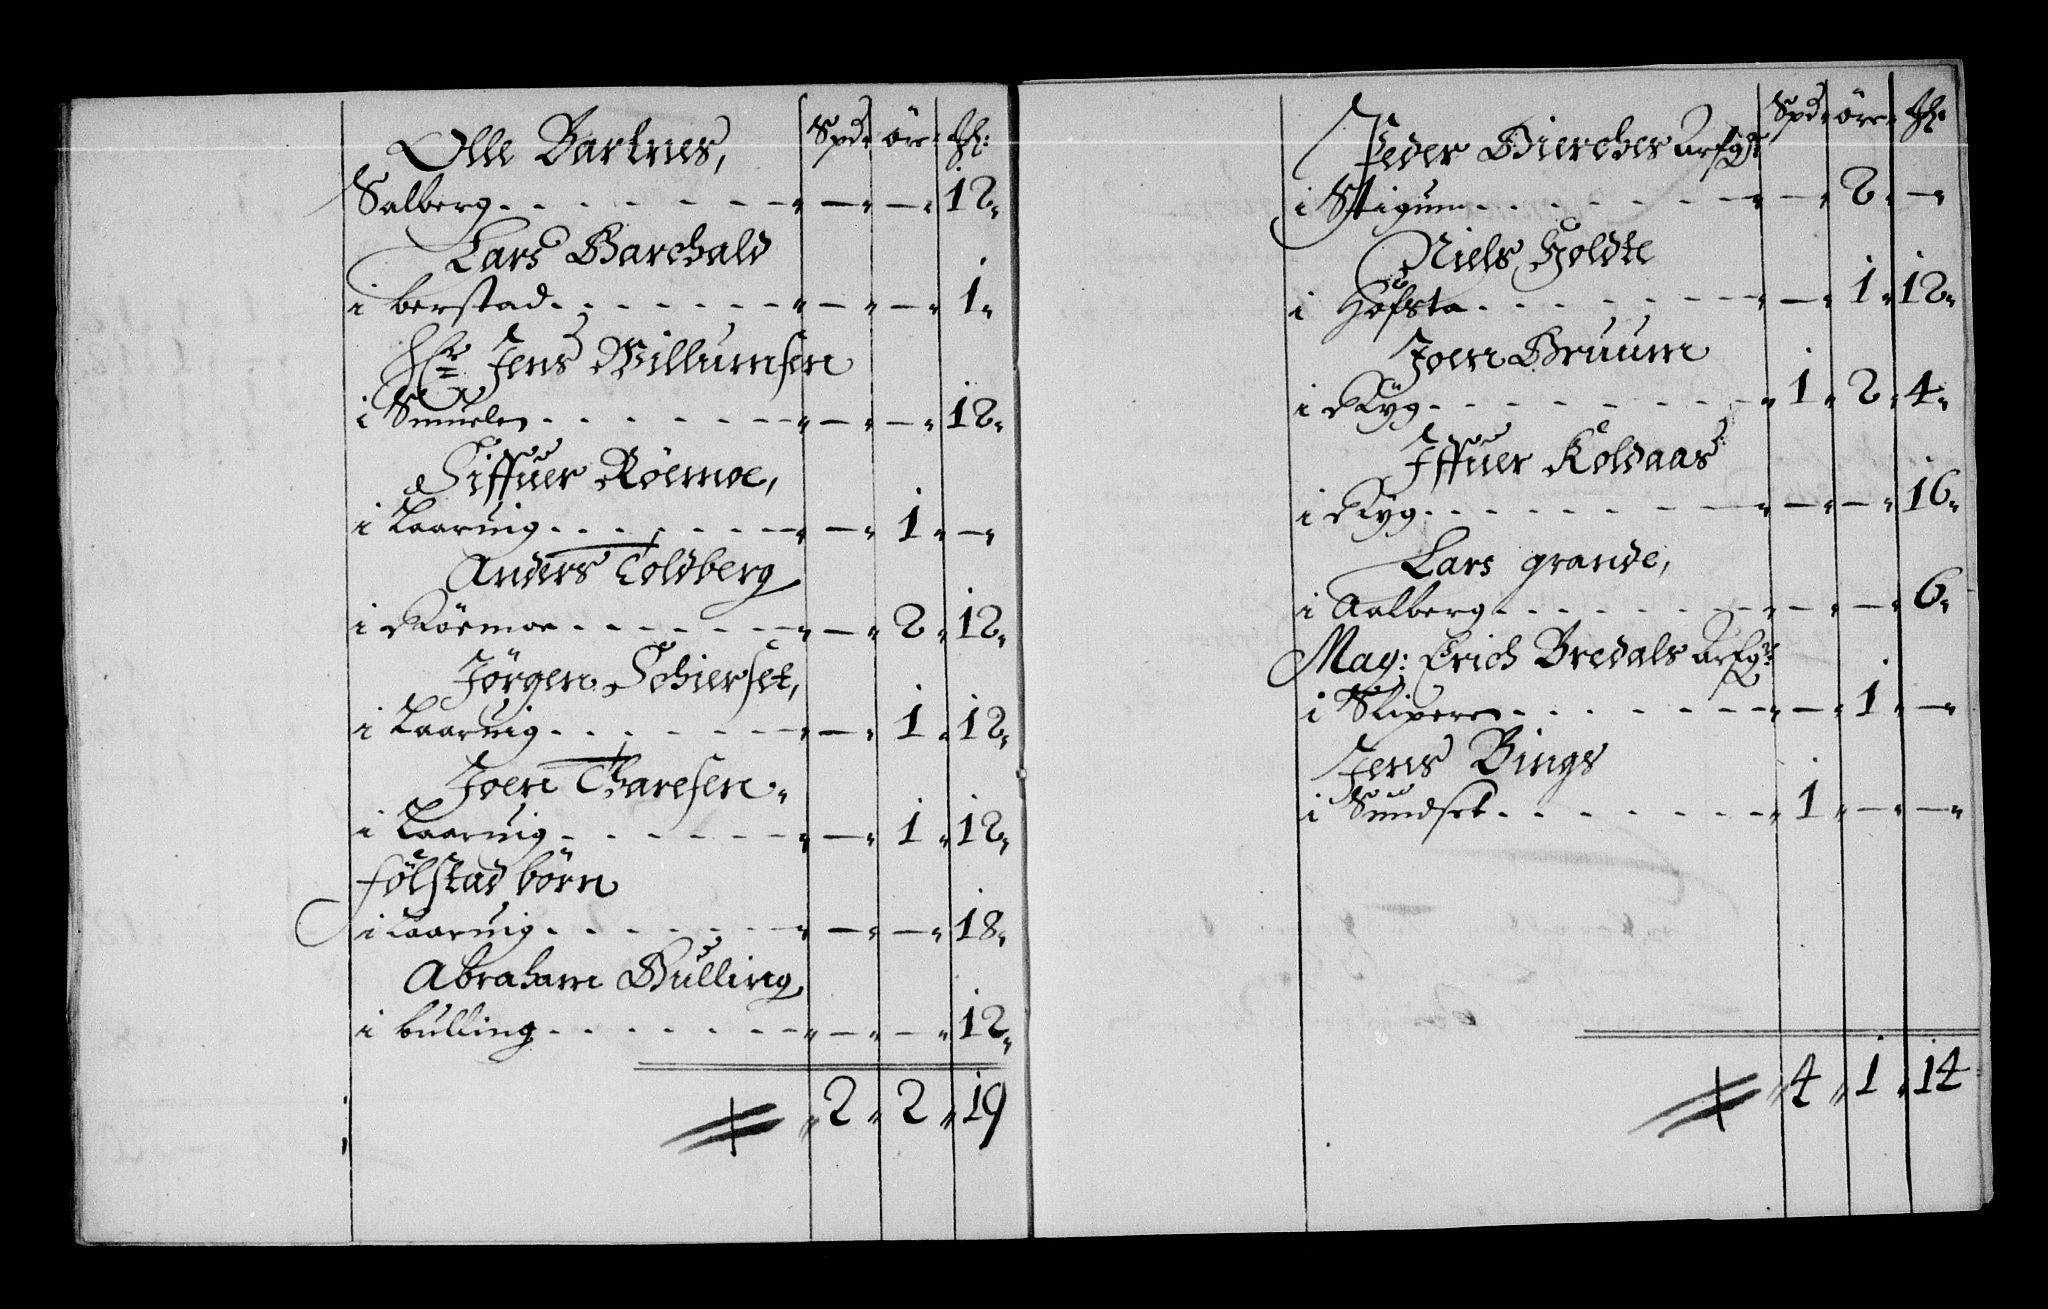 Spd. öre. ₰:
Olle Bartnes,
Salberg. . . . . . . „ — „ — „ 12„
Lars Barchald
i berstad. . . . . . . „ — „ — „ 1„
Hr Jens Willumsen
i Smuelen . . . . . . . „ — „ — „ 12„
Siffuer Röemoe,
i Laaruig. . . . . . . „ — „ 1 „ — „
Anders Toldberg
i Röemoe . . . . . . „ — „ 2 „ 12„
Jörgen Schierset,
i Laaruig. . . . . . „ — „ 1 „ 12„
Joen Tharesen„
i Laaruig. . . . . . „ — „ 1 „ 12„
fölstad börn
i Laaruig. . . . . . „ — „ — „ 18„
Abraham Bulling
i bulling. . . . . . . „ — „ — „ 12„
„ 2 „ 2 „ 19
Spd. öre. ₰:
Peder Bierches Arfg:
i Stigum. . . . . . . „ — „ 2 „ — „
Niels Holdte
i Höfsta. . . . . . . „ — „ 1 „ 12„
Joen Bruum
i Ryg. . . . . . . . „ 1 „ 2 „ 4„
Iffuer Koldaas
i Ryg. . . . . . . . „ — „ — „ 16„
Lars grande,
i Aalberg. . . . . . . „ — „ — „ 6„
Mag: Erich Bredals Arfg:
i Sliperen. . . . . . . „ — „ 1 „ — „
Jens Bings
i Sundset. . . . . . . „ 1 „ — „ — „
„ 4 „ 1 „ 14